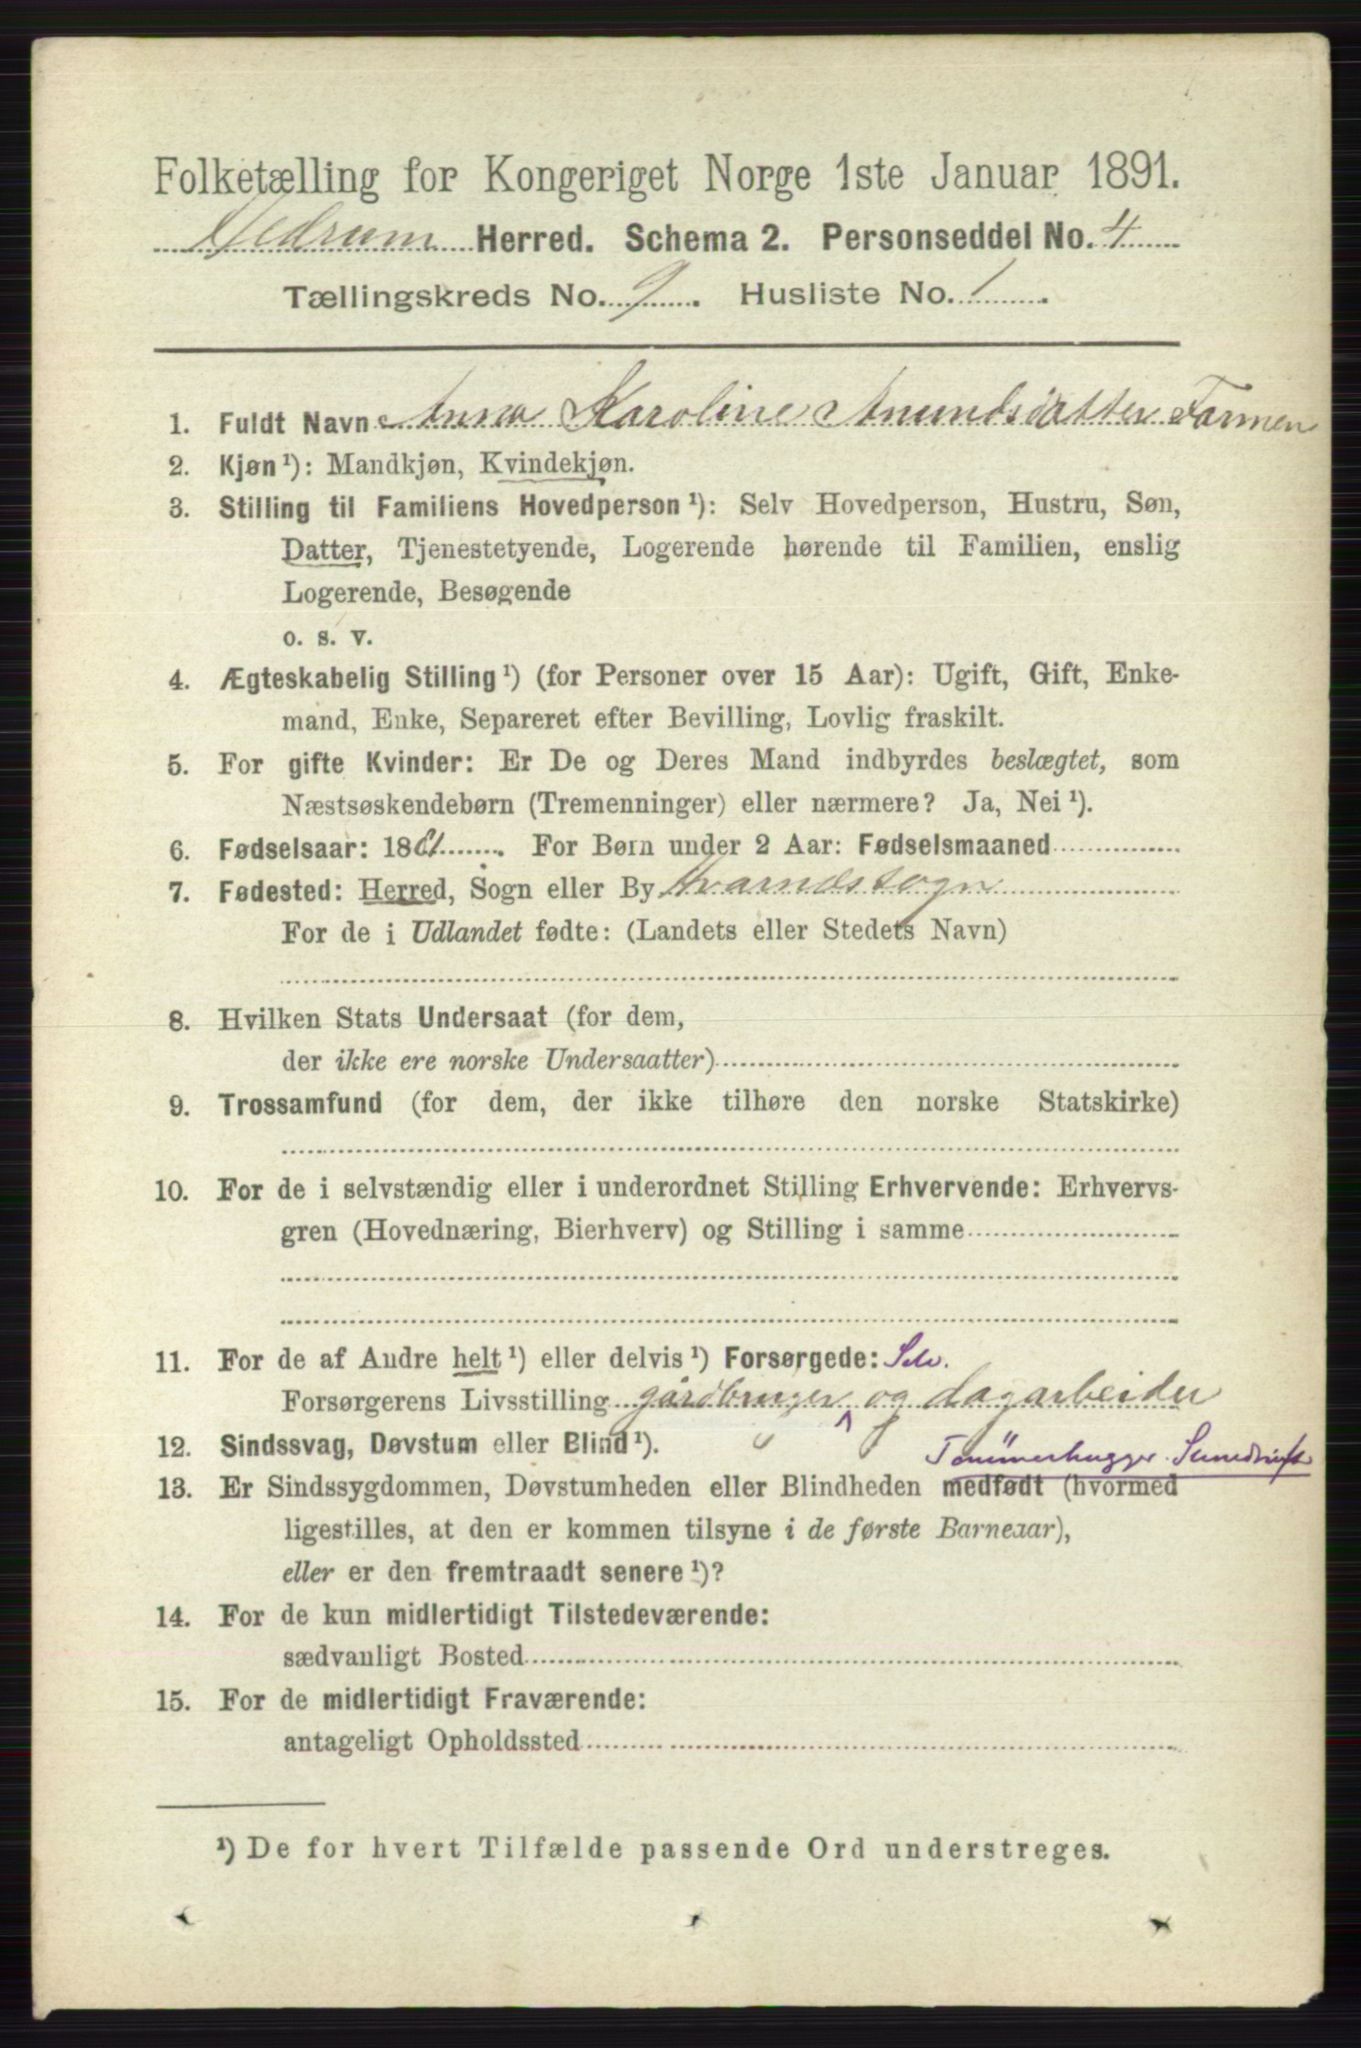 Folketælling for Kongeriget Norge 1ste Januar 1891.
Hedrum Herred. Schema 2. Personseddel No. 4
Tællingskreds No. 9. Husliste No. 1.
1. Fuldt Navn Anna Karoline Amundsdatter Farmen
2. Kjøn ¹): Mandkjøn, Kvindekjøn.
3. Stilling til Familiens Hovedperson ¹): Selv Hovedperson, Hustru, Søn,
Datter, Tjenestetyende, Logerende hørende til Familien, enslig
Logerende, Besøgende
o. s. v.
4. Ægteskabelig Stilling ¹) (for Personer over 15 Aar): Ugift, Gift, Enke-
mand, Enke, Separeret efter Bevilling, Lovlig fraskilt.
5. For gifte Kvinder: Er De og Deres Mand indbyrdes beslægtet, som
Næstsøskendebørn (Tremenninger) eller nærmere? Ja, Nei ¹).
6. Fødselsaar: 1881. For Børn under 2 Aar: Fødselsmaaned
7. Fødested: Herred, Sogn eller By Hvarnes sogn
For de i Udlandet fødte: (Landets eller Stedets Navn)
8. Hvilken Stats Undersaat (for dem,
der ikke ere norske Undersaatter)
9. Trossamfund (for dem, der ikke tilhøre den norske Statskirke)
10. For de i selvstændig eller i underordnet Stilling Erhvervende: Erhvervs-
gren (Hovednæring, Bierhverv) og Stilling i samme
11. For de af Andre helt ¹) eller delvis ¹) Forsørgede: Selv.
Forsørgerens Livsstilling gårdbruger og dagarbeider
12. Sindssvag, Døvstum eller Blind ¹). Tømmerhugger
13. Er Sindssygdommen, Døvstumheden eller Blindheden medfødt (hvormed
ligestilles, at den er kommen tilsyne i de første Barneaar),
eller er den fremtraadt senere ¹)?
14. For de kun midlertidigt Tilstedeværende:
sædvanligt Bosted
15. For de midlertidigt Fraværende:
antageligt Opholdssted
¹) De for hvert Tilfælde passende Ord understreges.